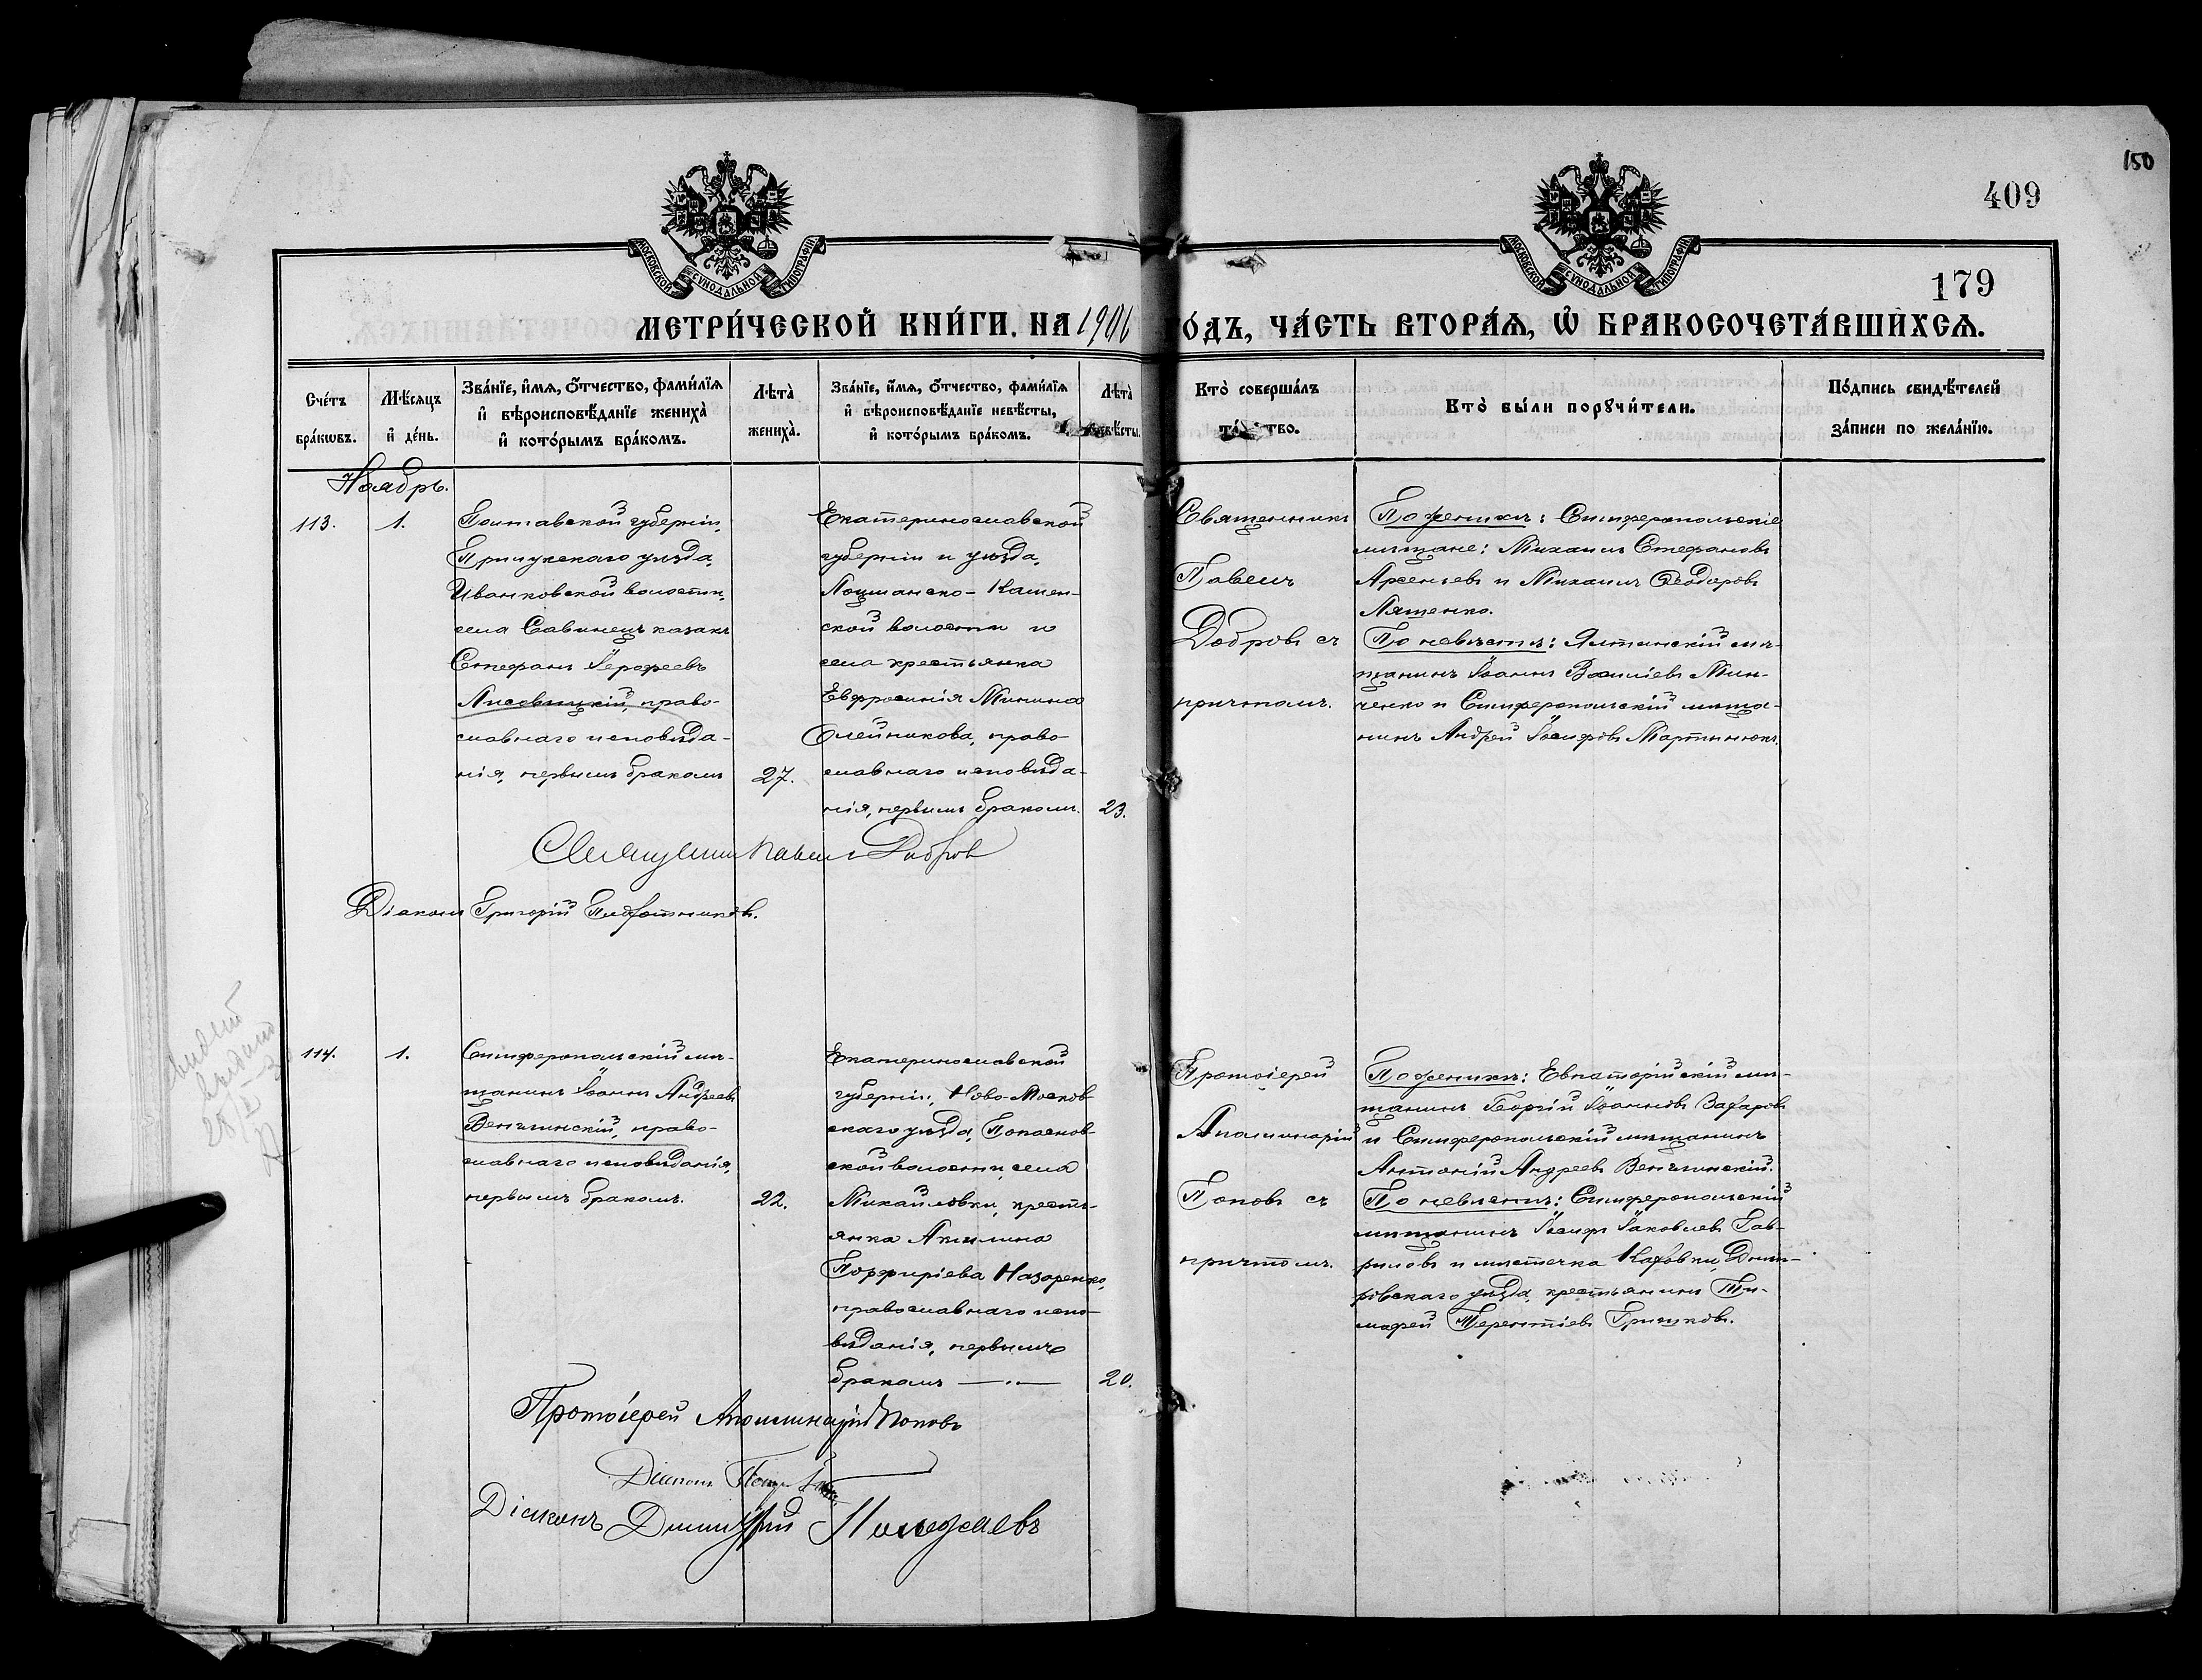 150
409
179
МОСКОВСКОЙ СѴНОДАЛЬНОЙ ТИПОГРАФІИ
МОСКОВСКОЙ СѴНОДАЛЬНОЙ ТИПОГРАФІИ
МЕТРИ́ЧЕСКОЙ КНИ́ГИ, НА 1906 О́ДЪ, ЧА́СТЬ ВТОРА́Я, Ѡ БРАКОСОЧЕТА́ВШИХСЯ.
Сче́тъ бра́кѡвъ.
Мѣ́сяцъ и де́нь.
Зва́нїе, и́мя, о́тчество, фами́лїя и вѣроисповѣ́данїе жениха̀ и кото́рымъ бра́комъ.
Лѣта̀ жениха̀.
Зва́нїе, и́мя, о́тчество, фами́лїя и вѣроисповѣ́данїе невѣ́сты, и кото́рымъ бра́комъ.
Лѣта̀ невѣ́сты.
Кто̀ соверша́лъ та́ ство.
Кто̀ бы́ли порꙋчи́тели.
По́дпись свидѣ́телей за́писи по жела́нїю.
Ноябрь.
113.
1.
Полтавской губерніи,
Прилукскаго уѣзда,
Иванковской волости,
села Савинецъ казакъ
Стефанъ Іерофеевъ
Лисовицкій, право-
славнаго исповѣда-
нія, первымъ бракомъ
27.
Екатеринославской
губерніи и уѣзда,
Лоцманско-Камен-
ской волости и
села крестьянка
Евфросинія Минина
Олейникова, право-
славнаго исповѣда-
нія, первымъ бракомъ.
23.
Священникъ
Павелъ
Добровъ съ
причтомъ.
По женихѣ: Симферопольскіе
мѣщане: Михаилъ Стефановъ
Арсеньевъ и Михаилъ Ѳеодоровъ
Ляшенко.
По невѣстѣ: Ялтинскій мѣ-
щанинъ Іоаннъ Василіевъ Мин-
ченко и Симферопольскій мѣща-
нинъ Андрей Іосифовъ Мартынюкъ.
Священникъ Павелъ Добровъ
Діаконъ Григорій
114.
1.
Симферопольскій мѣ-
щанинъ Іоаннъ Андреевъ
Венглинскій, право-
славнаго исповѣданія,
первымъ бракомъ.
22.
Екатеринославской
губерніи, Ново-Москов-
скаго уѣзда, Попаснов-
ской волости, села
Михайловки, кресть-
янка Акилина
Порфиріева Назаренко,
православнаго испо-
вѣданія, первымъ
бракомъ —·—
20.
Протоіерей
Аполлинарій
Поповъ съ
причтомъ.
По женихѣ: Евпаторійскій мѣ-
щанинъ Георгій Іоанновъ Захаровъ
и Симферопольскій мѣщанинъ
Антоній Андреевъ Венглинскій.
По невѣстѣ: Симферопольскій
мѣщанинъ Іосифъ Іаковлевъ Гав-
риловъ и мѣстечка Каховки, Днѣп-
ровскаго уѣзда, крестьянинъ Ти-
мофей Терентіевъ Гришковъ.
Протоіерей Аполлинарій Поповъ
Діаконъ Петръ
Діаконъ Димитрій Полежаевъ